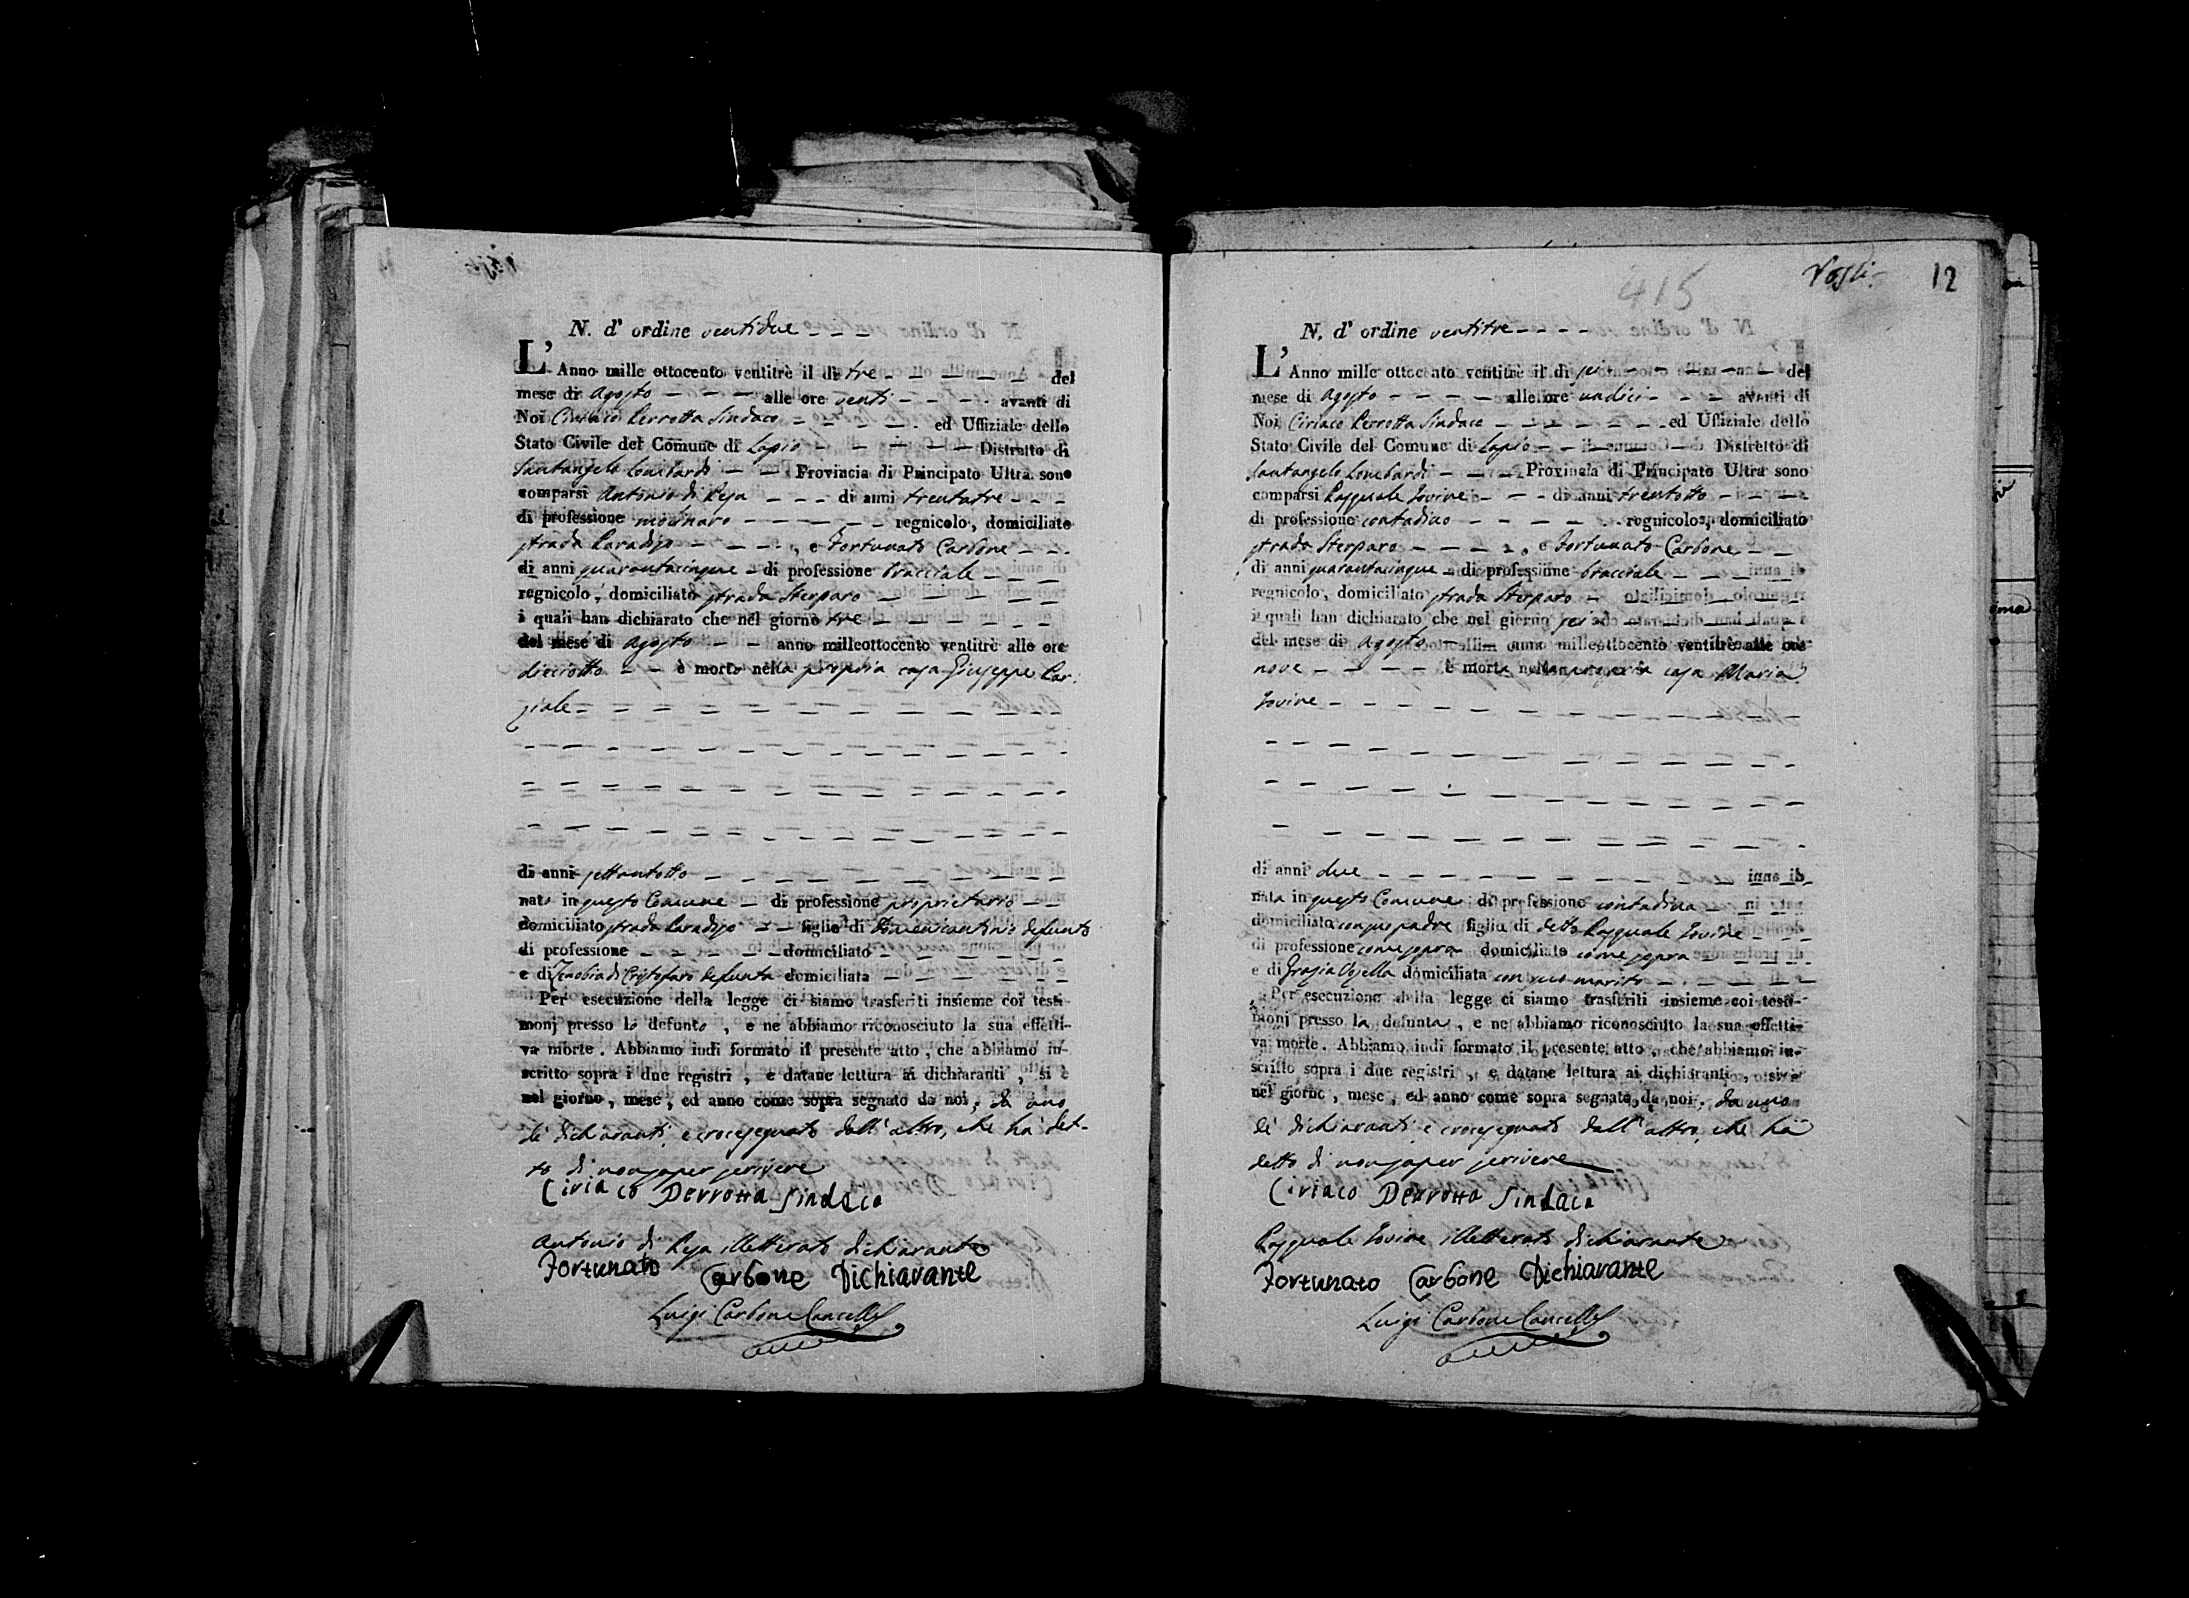 N. d' ordine ventidue
L' Anno mille ottocento ventitrè il di tre del
mese di Agosto alle ore venti avanti di
Noi Ciriaco Perrotta Sindaco ed Uffiziale dello
Stato Civile del Comune di Lapio Distretto di
Santangelo Lombardi Provincia di Principato Ultra sono
comparsi Antonio di Pesa di anni trentatre
di professione molinaro regnicolo, domiciliato
strada Paradiso, e Fortunato Carbone
di anni quarantacinque di professione bracciale
regnicolo, domiciliato strada Sterparo
i quali han dichiarato che nel giorno tre
del mese di Agosto anno milleottocento ventitrè alle ore
dieciotto è morto nella propria casa Giuseppe Car
ziale
di anni settantotto
nato in questo Comune di professione proprietario
domiciliato strada Paradiso figlio di defunto
di professione domiciliato
e di Zenobia di Cristofaro defunta domiciliata
Per esecuzione della legge ci siamo trasferiti insieme coi testi-
monj presso lo defunto, e ne abbiamo riconosciuto la sua effetti-
va morte. Abbiamo indi formato il presente atto, che abbiamo in-
scritto sopra i due registri, e datane lettura ai dichiaranti, si è
nel giorno, mese, ed anno come sopra segnato da noi, da uno
de' dichiaranti, e crocesegnato dall' altro, che ha det-
to di non saper scrivere
Ciriaco Perrotta Sindaco
Antonio di Pesa illetterato dichiarante
Fortunato Carbone Dichiarante
Luigi Carbone Cancell
415
Visti
12
N. d' ordine ventitre
L' Anno mille ottocento ventitrè il di sei del
mese di Agosto alle ore undici avanti di
Noi Ciriaco Perrotta Sindaco ed Uffiziale dello
Stato Civile del Comune di Lapio Distretto di
Santangelo Lombardi Provincia di Principato Ultra sono
comparsi Pasquale Iovine di anni trentotto
di professione contadino regnicolo, domiciliato
strada Sterparo, e Fortunato Carbone
di anni quarantacinque di professione bracciale
regnicolo, domiciliato strada Sterparo
i quali han dichiarato che nel giorno sei
del mese di Agosto anno milleottocento ventitrè alle ore
nove è morta nella propria casa Maria
Iovine
di anni due
nata in questo Comune di professione contadina
domiciliata con suo padre figlia di detto Pasquale Iovine
di professione come sopra domiciliato come sopra
e di Grazia domiciliata con suo marito
Per esecuzione della legge ci siamo trasferiti insieme coi testi-
monj presso la defunta, e ne abbiamo riconosciuto la sua effetti-
va morte. Abbiamo indi formato il presente atto, che abbiamo in-
scritto sopra i due registri, e datane lettura ai dichiaranti, si è
nel giorno, mese, ed anno come sopra segnato da noi, da uno
de' dichiaranti e crocesegnato dall' altro, che ha
detto di non saper scrivere
Ciriaco Perrotta Sindaco
Pasquale Iovine illetterato dichiarante
Fortunato Carbone Dichiarante
Luigi Carbone Cancell